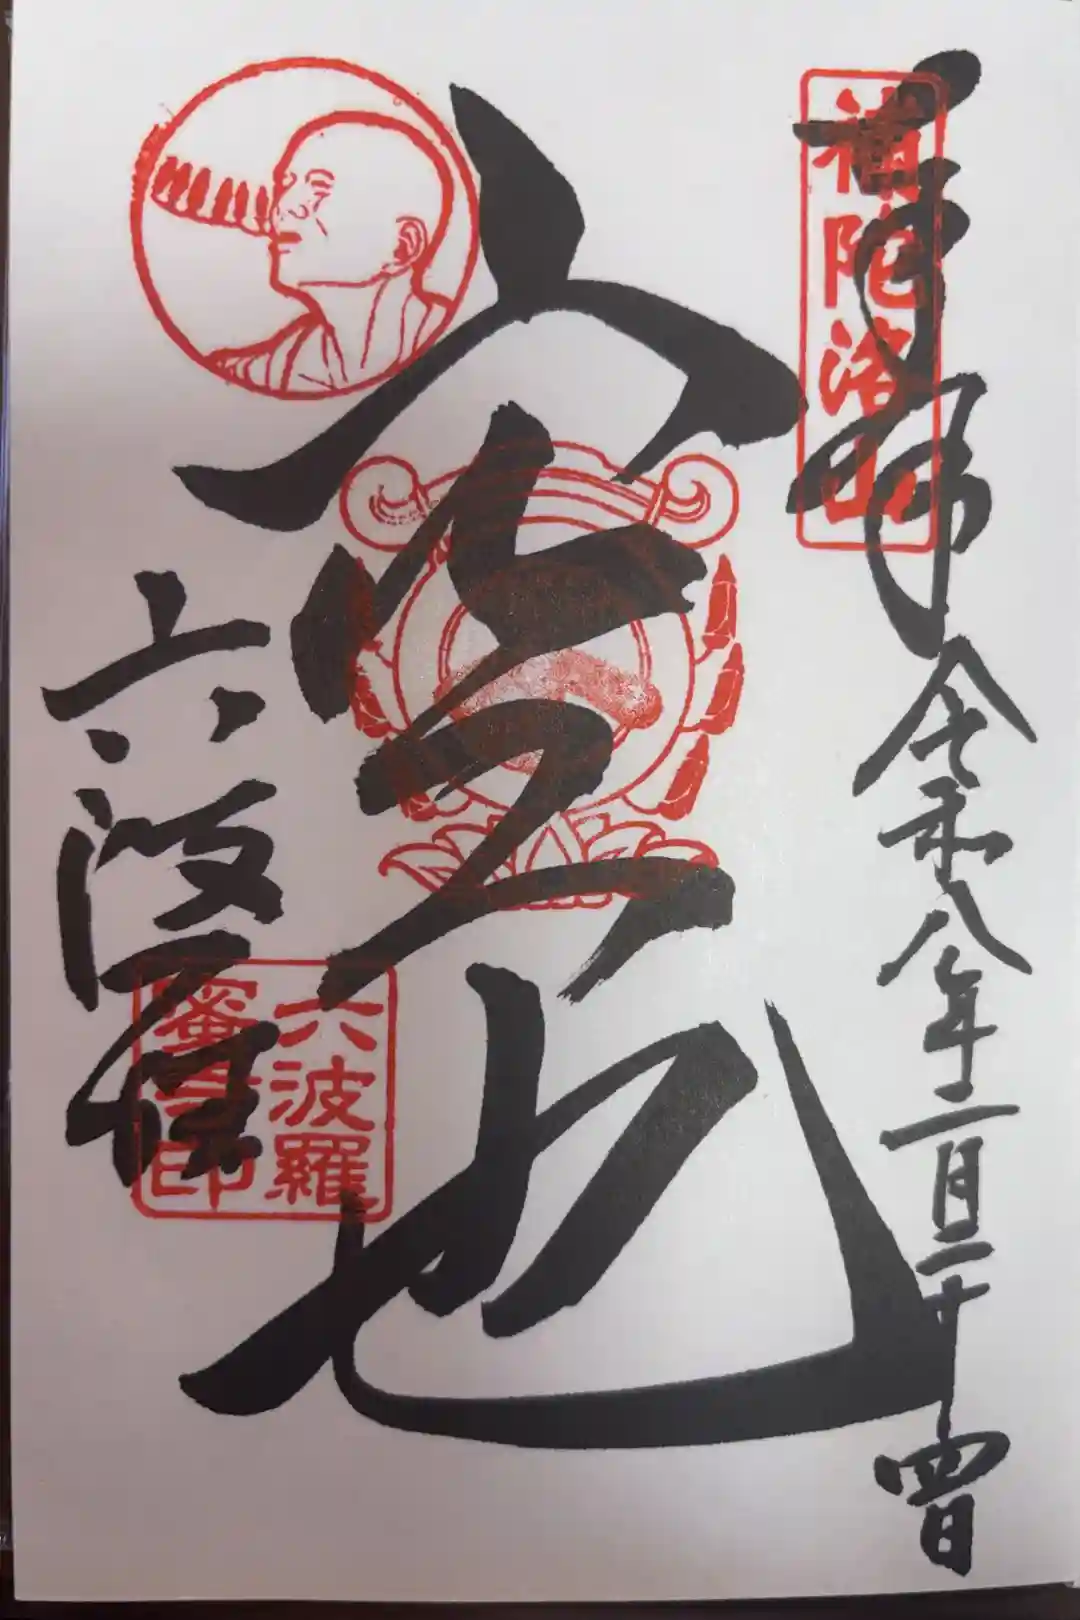 奉拝
補陀洛山
令和八年二月二十四日
空也
六波羅
六波羅
蜜寺印